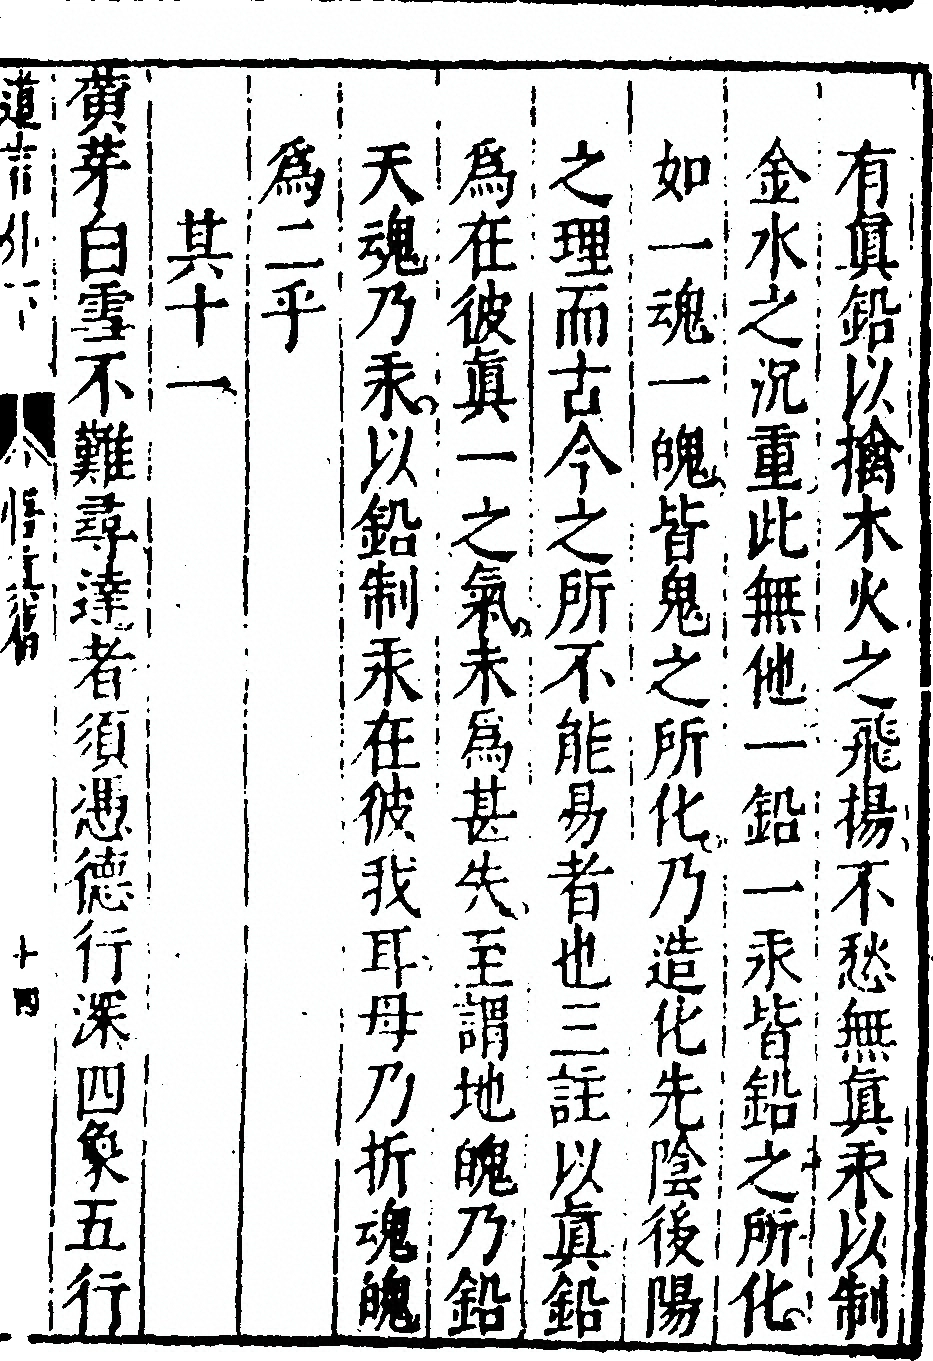 有眞鉛以擒木火之飛揚不愁無眞汞以制
金水之沉重此無他一鉛一汞皆鉛之所化
如一魂一魄皆鬼之所化乃造化先陰後陽
之理而古今之所不能易者也三註以眞鉛
爲在彼眞一之氣未爲甚失至謂地魄乃鉛
天魂乃汞以鉛制汞在彼我耳毋乃折魂魄
爲二乎
其十一
黄芽白雪不難尋達者須憑德行深四象五行
道言外
悟眞篇
十四